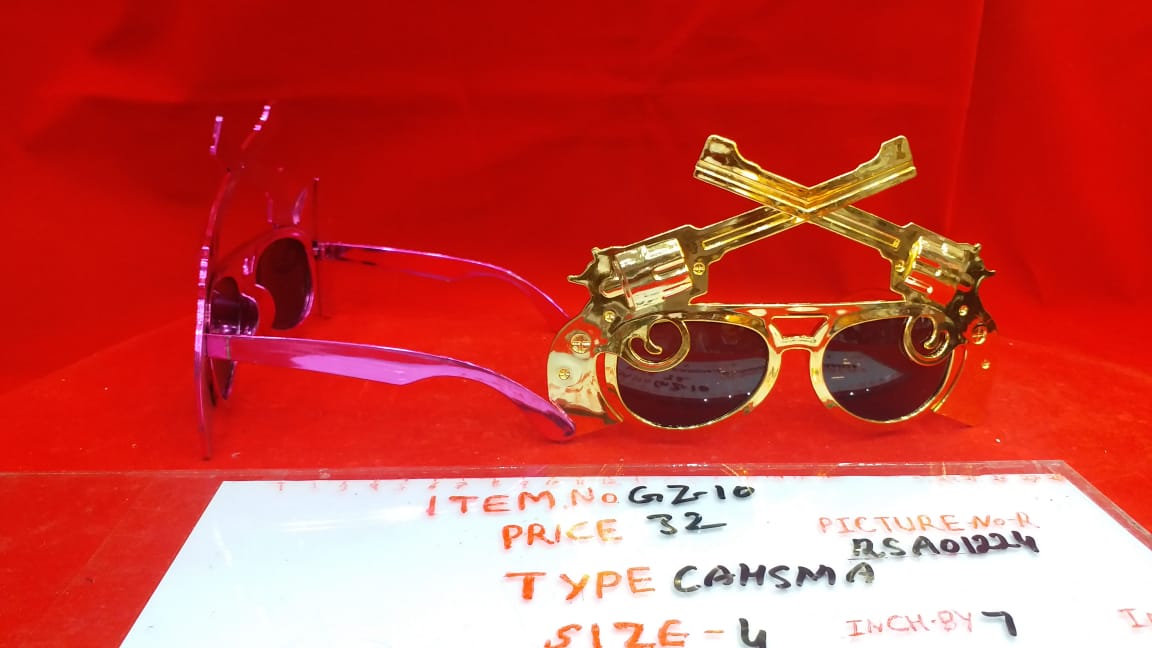 ITEM.No. GZ-10
PRICE 32
PICTURE-No-R
RSA01224
TYPE CAHSMA
SIZE-4 INCH-BY 7